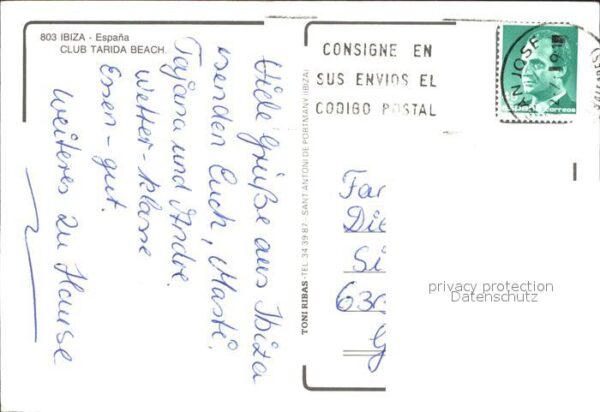 803 IBIZA - España
CLUB TARIDA BEACH.
Viele Grüße aus Ibiza
senden Euch,
Tajana und Andre.
Wetter-klasse
Essen-gut.
Weiteres zu Hause
TONI RIBAS-TEL. 34 39 87 - SANT ANTONI DE PORTMANY (IBIZA)
CONSIGNE EN
SUS ENVIOS EL
CODIGO POSTAL
SAN JOSE
correos
Far
Die
Si
63
G
privacy protection
Datenschutz